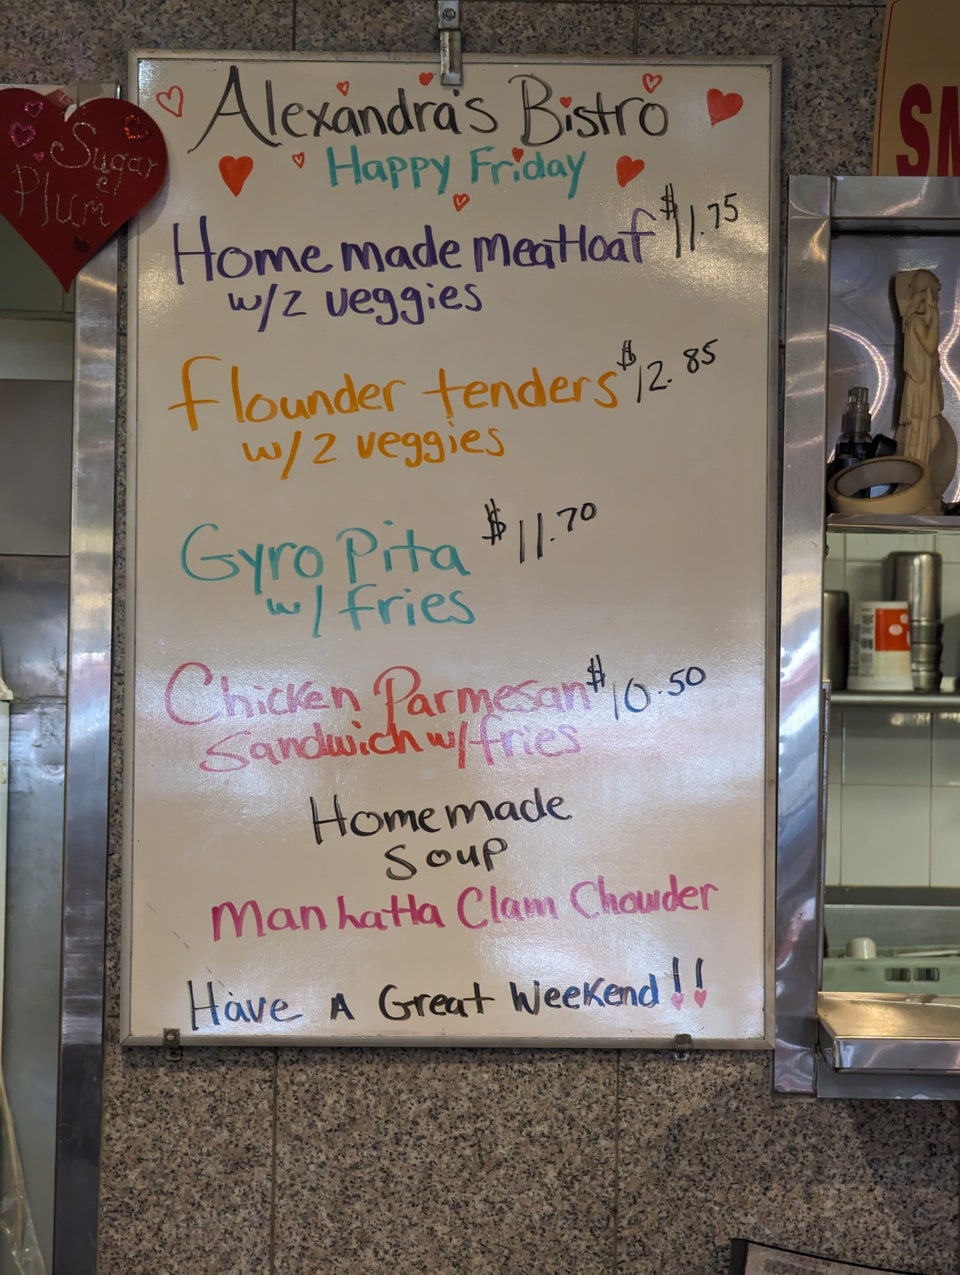 Alexandra's Bistro
Happy Friday
Sugar
Plum
Home made meatloaf $11.75
w/2 veggies
Flounder tenders $12.85
w/2 veggies
Gyro Pita $11.70
w/ fries
Chicken Parmesan $10.50
Sandwich w/ fries
Home made
Soup
Manhatta Clam Chowder
Have A Great Weekend!!